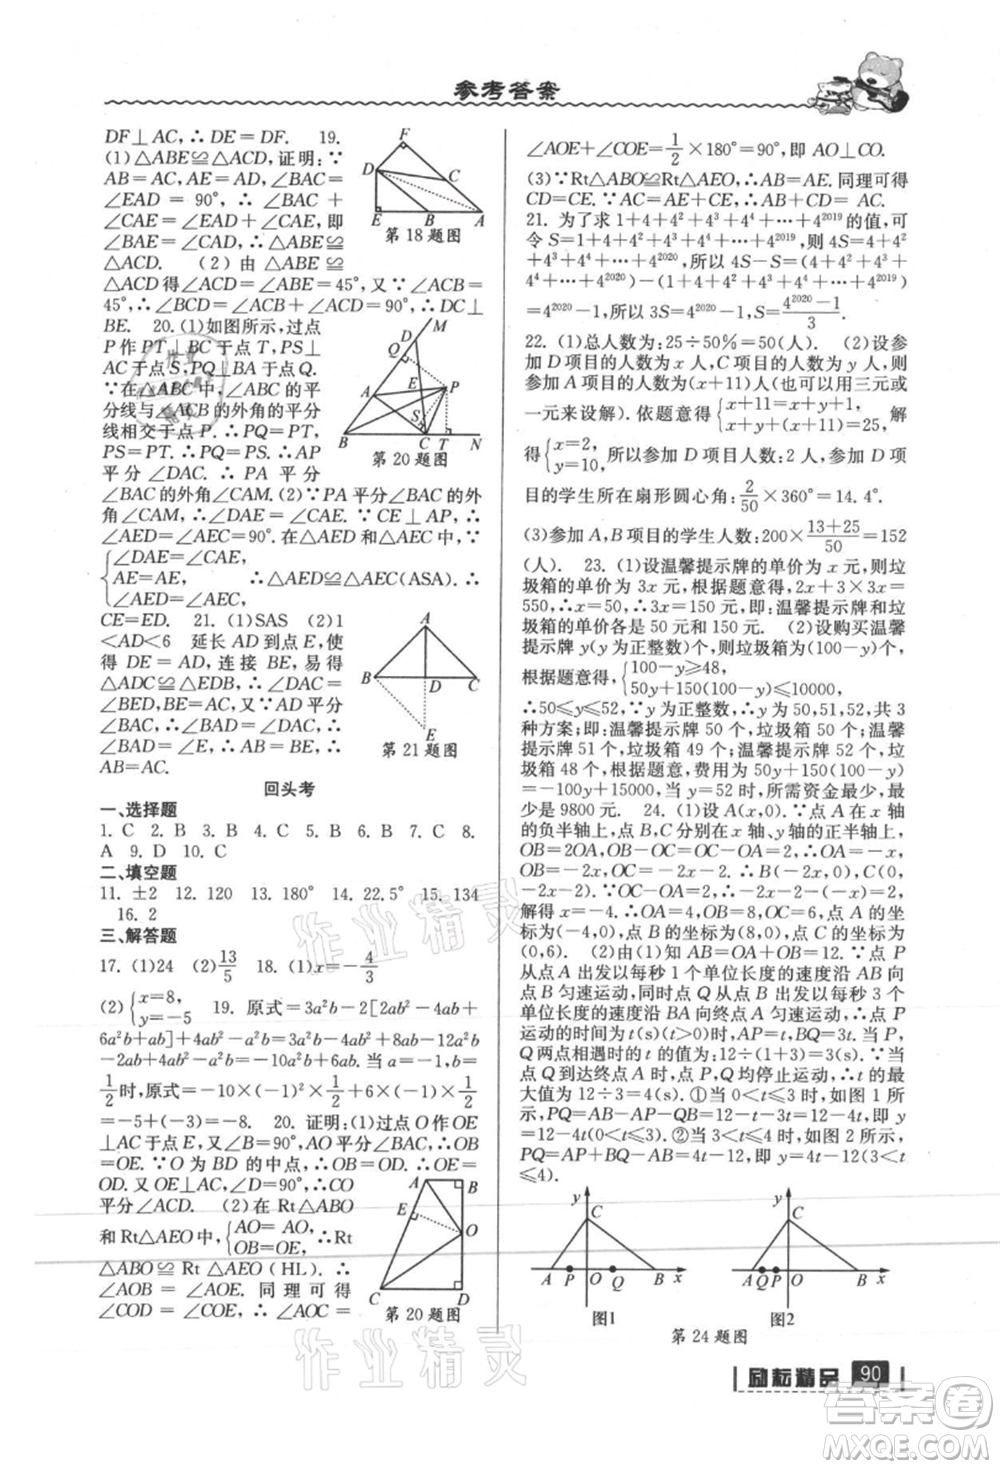 参考答案
DF⊥AC,∴DE=DF. 19.
(1)△ABE≌△ACD,证明:∵
AB=AC,∠BAC=90°,
∠EAD=90°,∴∠BAC+
∠CAE=∠EAD+∠CAE,即
∠BAE=∠CAD,∴△ABE≌
△ACD. (2)由△ABE≌
△ACD得∠ACD=∠ABE=45°,又∵∠ACB=
45°,∴∠BCD=∠ACB+∠ACD=90°,∴DC⊥
BE. 20.(1)如图所示,过点
P作PT⊥BC于点T,PS⊥AC
于点S,PQ⊥BA于点Q.
∵在△ABC中,∠ABC的平
分线与∠ACB的外角的平分
线相交于点P,∴PQ=PT,
PS=PT.∴PQ=PS,∴AP
平分∠DAC,∴PA平分
∠BAC的外角∠CAM. (2)∵PA平分∠BAC的外
角∠CAM,∴∠DAE=∠CAE.∵CE⊥AP,∴
∠AED=∠AEC=90°.在△AED和△AEC中,
{∠DAE=∠CAE,
AE=AE, ∴△AED≌△AEC(ASA).∴
∠AED=∠AEC,
CE=ED. 21.(1)SAS (2)1
<AD<6 延长AD到点E,使
得DE=AD,连接BE,易得
△ADC≌△EDB,∴∠DAC=
∠BED,BE=AC,又∵AD平分
∠BAC,∴∠BAD=∠DAC,∴
∠BAD=∠BED,∴AB=BE,∴
AB=AC.
F
D
C
E
B
A
第18题图
M
D
Q
A
E
P
S
B
C
T
N
第20题图
A
B
D
C
E
第21题图
回头考
一、选择题
1. C 2. B 3. B 4. C 5. B 6. B 7. C 8.
A 9. D 10. C
二、填空题
11. ±2 12. 120 13. 180° 14. 22.5° 15. 134
16. 2
三、解答题
17. (1)24 (2)13/5 18. (1)x=-4/3
(2){x=8,
y=-5 19. 原式=3a²b-2[2ab²-4ab+
6a²b+ab]+4ab²-a²b=3a²b-4ab²+8ab-12a²b
-2ab+4ab²-a²b=-10a²b+6ab.当a=-1,b=
1/2时,原式=-10×(-1)²×1/2+6×(-1)×1/2
=-5+(-3)=-8. 20. 证明:(1)过点O作OE
⊥AC于点E,又∠B=90°,AO平分∠BAC,∴OB
=OE.∵O为BD的中点,∴OB=OD.∴OE=
OD.又∵OE⊥AC,∠D=90°,∴CO
平分∠ACD. (2)在Rt△ABO
和Rt△AEO中,{AO=AO,
OB=OE,∴Rt
△ABO≌Rt△AEO(HL).∴
∠AOB=∠AOE.同理可得
∠COD=∠COE,∴∠AOC=
A
B
E
O
C
D
第20题图
∠AOE+∠COE=1/2×180°=90°,即AO⊥CO.
(3)∵Rt△ABO≌Rt△AEO,∴AB=AE.同理可得
CD=CE.∵AC=AE+CE,∴AB+CD=AC.
21. 为了求1+4+4²+4³+4⁴+…+4²⁰¹⁹的值,可
令S=1+4+4²+4³+4⁴+…+4²⁰¹⁹,则4S=4+4²
+4³+4⁴+…+4²⁰²⁰,所以4S-S=(4+4²+4³+4⁴
+…+4²⁰²⁰)-(1+4+4²+4³+4⁴+…+4²⁰¹⁹)
=4²⁰²⁰-1,所以3S=4²⁰²⁰-1,S=(4²⁰²⁰-1)/3.
22. (1)总人数为:25÷50%=50(人). (2)设参
加D项目的人数为x人,C项目的人数为y人,则
参加A项目的人数为(x+11)(也可以用三元或
一元来设解).依题意得{x+11=x+y+1,
x+y+(x+11)=25. 解
得{x=2,
y=10.所以参加D项目人数:2人,参加D项
目的学生所在扇形圆心角:2/50×360°=14.4°.
(3)参加A,B项目的学生人数:200×(13+25)/50=152
(人). 23. (1)设温馨提示牌的单价为x元,则垃
圾箱的单价为3x元,根据题意得,2x+3×3x=
550,∴x=50,∴3x=150元,即:温馨提示牌和垃
圾箱的单价各是50元和150元. (2)设购买温馨
提示牌y(y为正整数)个,则垃圾箱为(100-y)个,
根据题意得{100-y≥48,
50y+150(100-y)≤10000,
∴50≤y≤52,∵y为正整数,∴y为50,51,52,共3
种方案;即:温馨提示牌50个,垃圾箱50个;温馨
提示牌51个,垃圾箱49个;温馨提示牌52个,垃
圾箱48个,根据题意,费用为50y+150(100-y)=
-100y+15000,当y=52时,所需资金最少,最少
是9800元. 24. (1)设A(x,0).∵点A在x轴
的负半轴上,点B,C分别在x轴、y轴的正半轴上,
OB=2OA,OB-OC=OA=2,∴B(-2x,0),C(0,
-2-x).又∵AB=12,∴OA+OB=-x-2x=12,
解得x=-4,∴OA=4,OB=8,OC=6,∴点A的坐标
为(-4,0),点B的坐标为(8,0),点C的坐标为
(0,6). (2)由(1)知AB=OA+OB=12.∵点P
从点A出发以每秒1个单位长度的速度沿AB向点
B匀速运动,同时点Q从点B出发以每秒3个
单位长度的速度沿BA向终点A匀速运动,点P
运动的时间为t(s)(t>0),AP=t,BQ=3t.当P,
Q两点相遇时的t的值为:12÷(1+3)=3.∵当点
Q到达终点A时,点P,Q均停止运动,∴此时t的最
大值为12÷3=4.①当0<t≤3时,如图1所
示,PQ=AB-AP-BQ=12-t-3t=12-4t,即y
=12-4t(0<t≤3).②当3<t≤4时,如图2所示,
PQ=AP+BQ-AB=t+3t-12=4t-12,即y=4t-12(3<t
≤4).
y
C
A
P
O
Q
B
x
图1
y
C
A
Q
P
O
B
x
图2
第24题图
励耘精品 90
作业精灵
作业精灵
答案圈
MXQE.COM